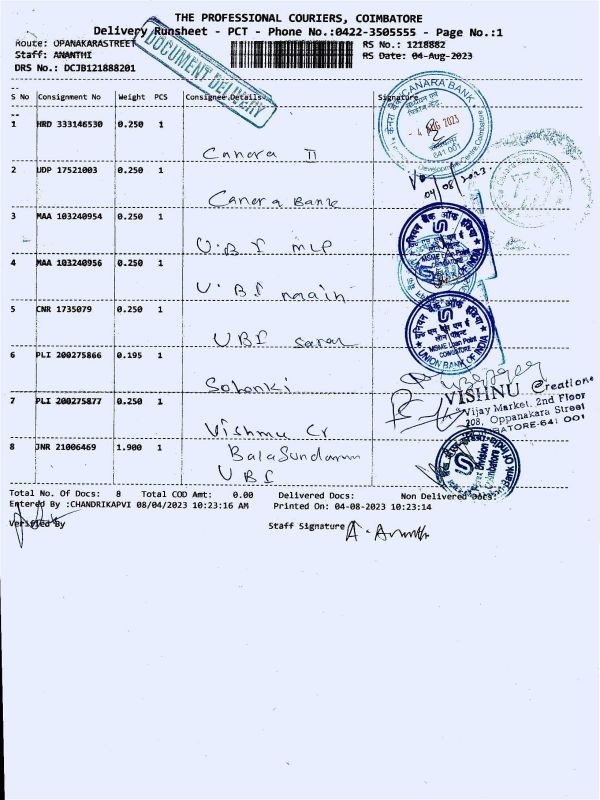 THE PROFESSIONAL COURIERS, COIMBATORE
Delivery Runsheet - PCT - Phone No.:0422-3505555 - Page No.:1
Route: OPANAKARASTREET
RS No.: 1218882
Staff: ANANTHI
RS Date: 04-Aug-2023
DRS No.: DCJB121888201
DOCUMENT DELIVERY
S No Consignment No Weight PCS Consignee Details Signature
1 HRD 333146530 0.250 1
Canera II
CANARA BANK
- 4 AUG 2023
641 001
2 UDP 17521003 0.250 1
Canera Bank
04/08/2023
3 MAA 103240954 0.250 1
U.B.I MLP
यूनियन बैंक ऑफ इंडिया
4 MAA 103240956 0.250 1
U.B.I main
5 CNR 1735079 0.250 1
UBI saran
यूनियन बैंक ऑफ इंडिया
MSME Loan Point
COIMBATORE
UNION BANK OF INDIA
6 PLI 200275866 0.195 1
Solonki
7 PLI 200275877 0.250 1
Vishnu Cr
VISHNU Creations
Vijay Market, 2nd Floor
208, Oppanakara Street
COIMBATORE-641 001
8 JNR 21006469 1.900 1
BalaSundaram
UBI
Total No. Of Docs: 8 Total COD Amt: 0.00 Delivered Docs: Non Delivered Docs:
Entered By :CHANDRIKAPVI 08/04/2023 10:23:16 AM Printed On: 04-08-2023 10:23:14
Verified By
Staff Signature